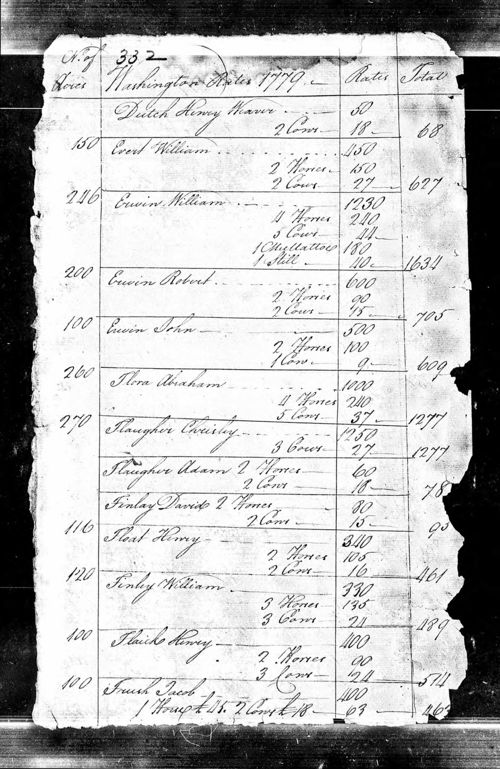 No. of 332
Acres Washington Rates 1779 Rates Total
Dutch Henry Weaver 50
2 Cows 18 68
150 Evert William 450
2 Horses 150
2 Cows 27 627
246 Erwin William 1230
4 Horses 240
5 Cows 44
1 Mullattoe 180
1 Still 40 1634
200 Erwin Robert 600
2 Horses 90
2 Cows 15 705
100 Erwin John 500
2 Horses 100
1 Cow 9 609
260 Flora Abraham 1000
4 Horses 240
5 Cows 37 1277
270 Flaugher Chrisley 1250
3 Cows 27 1277
Flaugher Adam 2 Horses 60
2 Cows 18 78
Finlay David 2 Horses 80
2 Cows 15 95
116 Float Henry 340
2 Horses 105
2 Cows 16 461
120 Finley William 330
3 Horses 135
3 Cows 24 489
100 Flaick Henry 400
2 Horses 90
3 Cows 24 514
100 Frush Jacob 400
1 Horse £ 45. 2 Cows £ 18 63 463